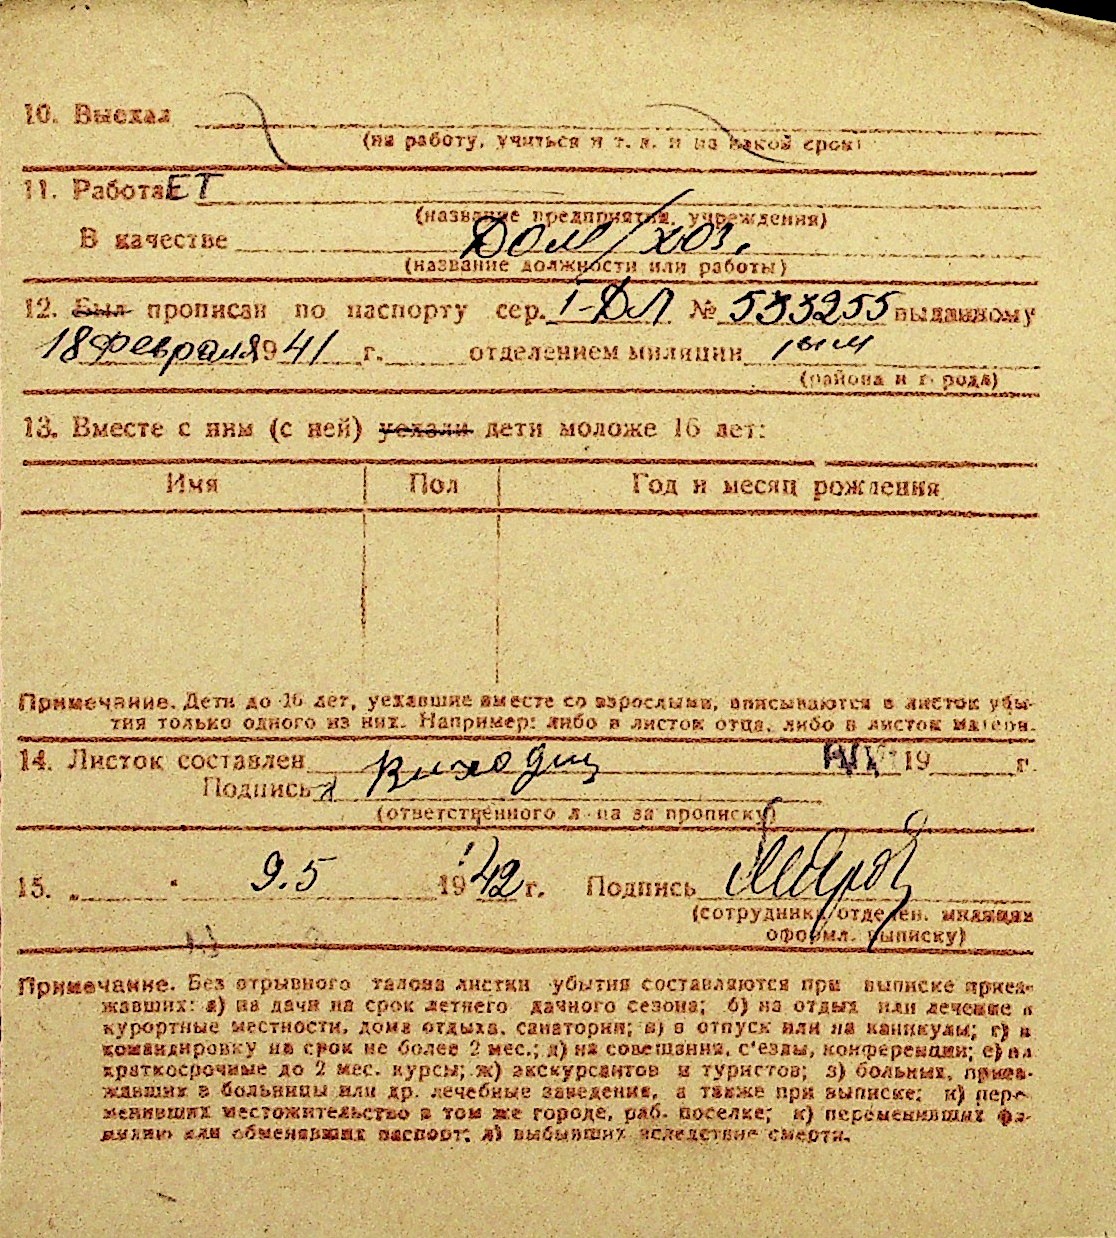 10. Выехал
(на работу, учиться и т. д. и на какой срок)
11. РаботаЕТ
(название предприятия, учреждения)
В качестве Дом/хоз.
(название должности или работы)
12. Был прописан по паспорту сер. I-ДЛ № 533255 выданному
18 февраля 1941 г. отделением милиции
(района и города)
13. Вместе с ним (с ней) уехали дети моложе 16 лет:
Имя Пол Год и месяц рождения
Примечание. Дети до 16 лет, уехавшие вместе со взрослыми, вписываются в листок убы-
тия только одного из них. Например: либо в листок отца, либо в листок матери.
14. Листок составлен 19 г.
Подпись
(ответственного л-ца за прописку)
15. „ " 9.5 1942 г. Подпись
(сотрудника отделен. милиции
оформл. выписку)
Примечание. Без отрывного талона листки убытия составляются при выписке приез-
жавших: а) на дачи на срок летнего дачного сезона; б) на отдых или лечение в
курортные местности, дома отдыха, санатории; в) в отпуск или на каникулы; г) в
командировку на срок не более 2 мес.; д) на совещания, с'езды, конференции; е) на
краткосрочные до 2 мес. курсы; ж) экскурсантов и туристов; з) больных, приез-
жавших в больницы или др. лечебные заведения, а также при выписке; и) пере-
менивших местожительство в том же городе, раб. поселке; к) переменивших фа-
милию или обменявших паспорт; л) выбывших вследствие смерти.